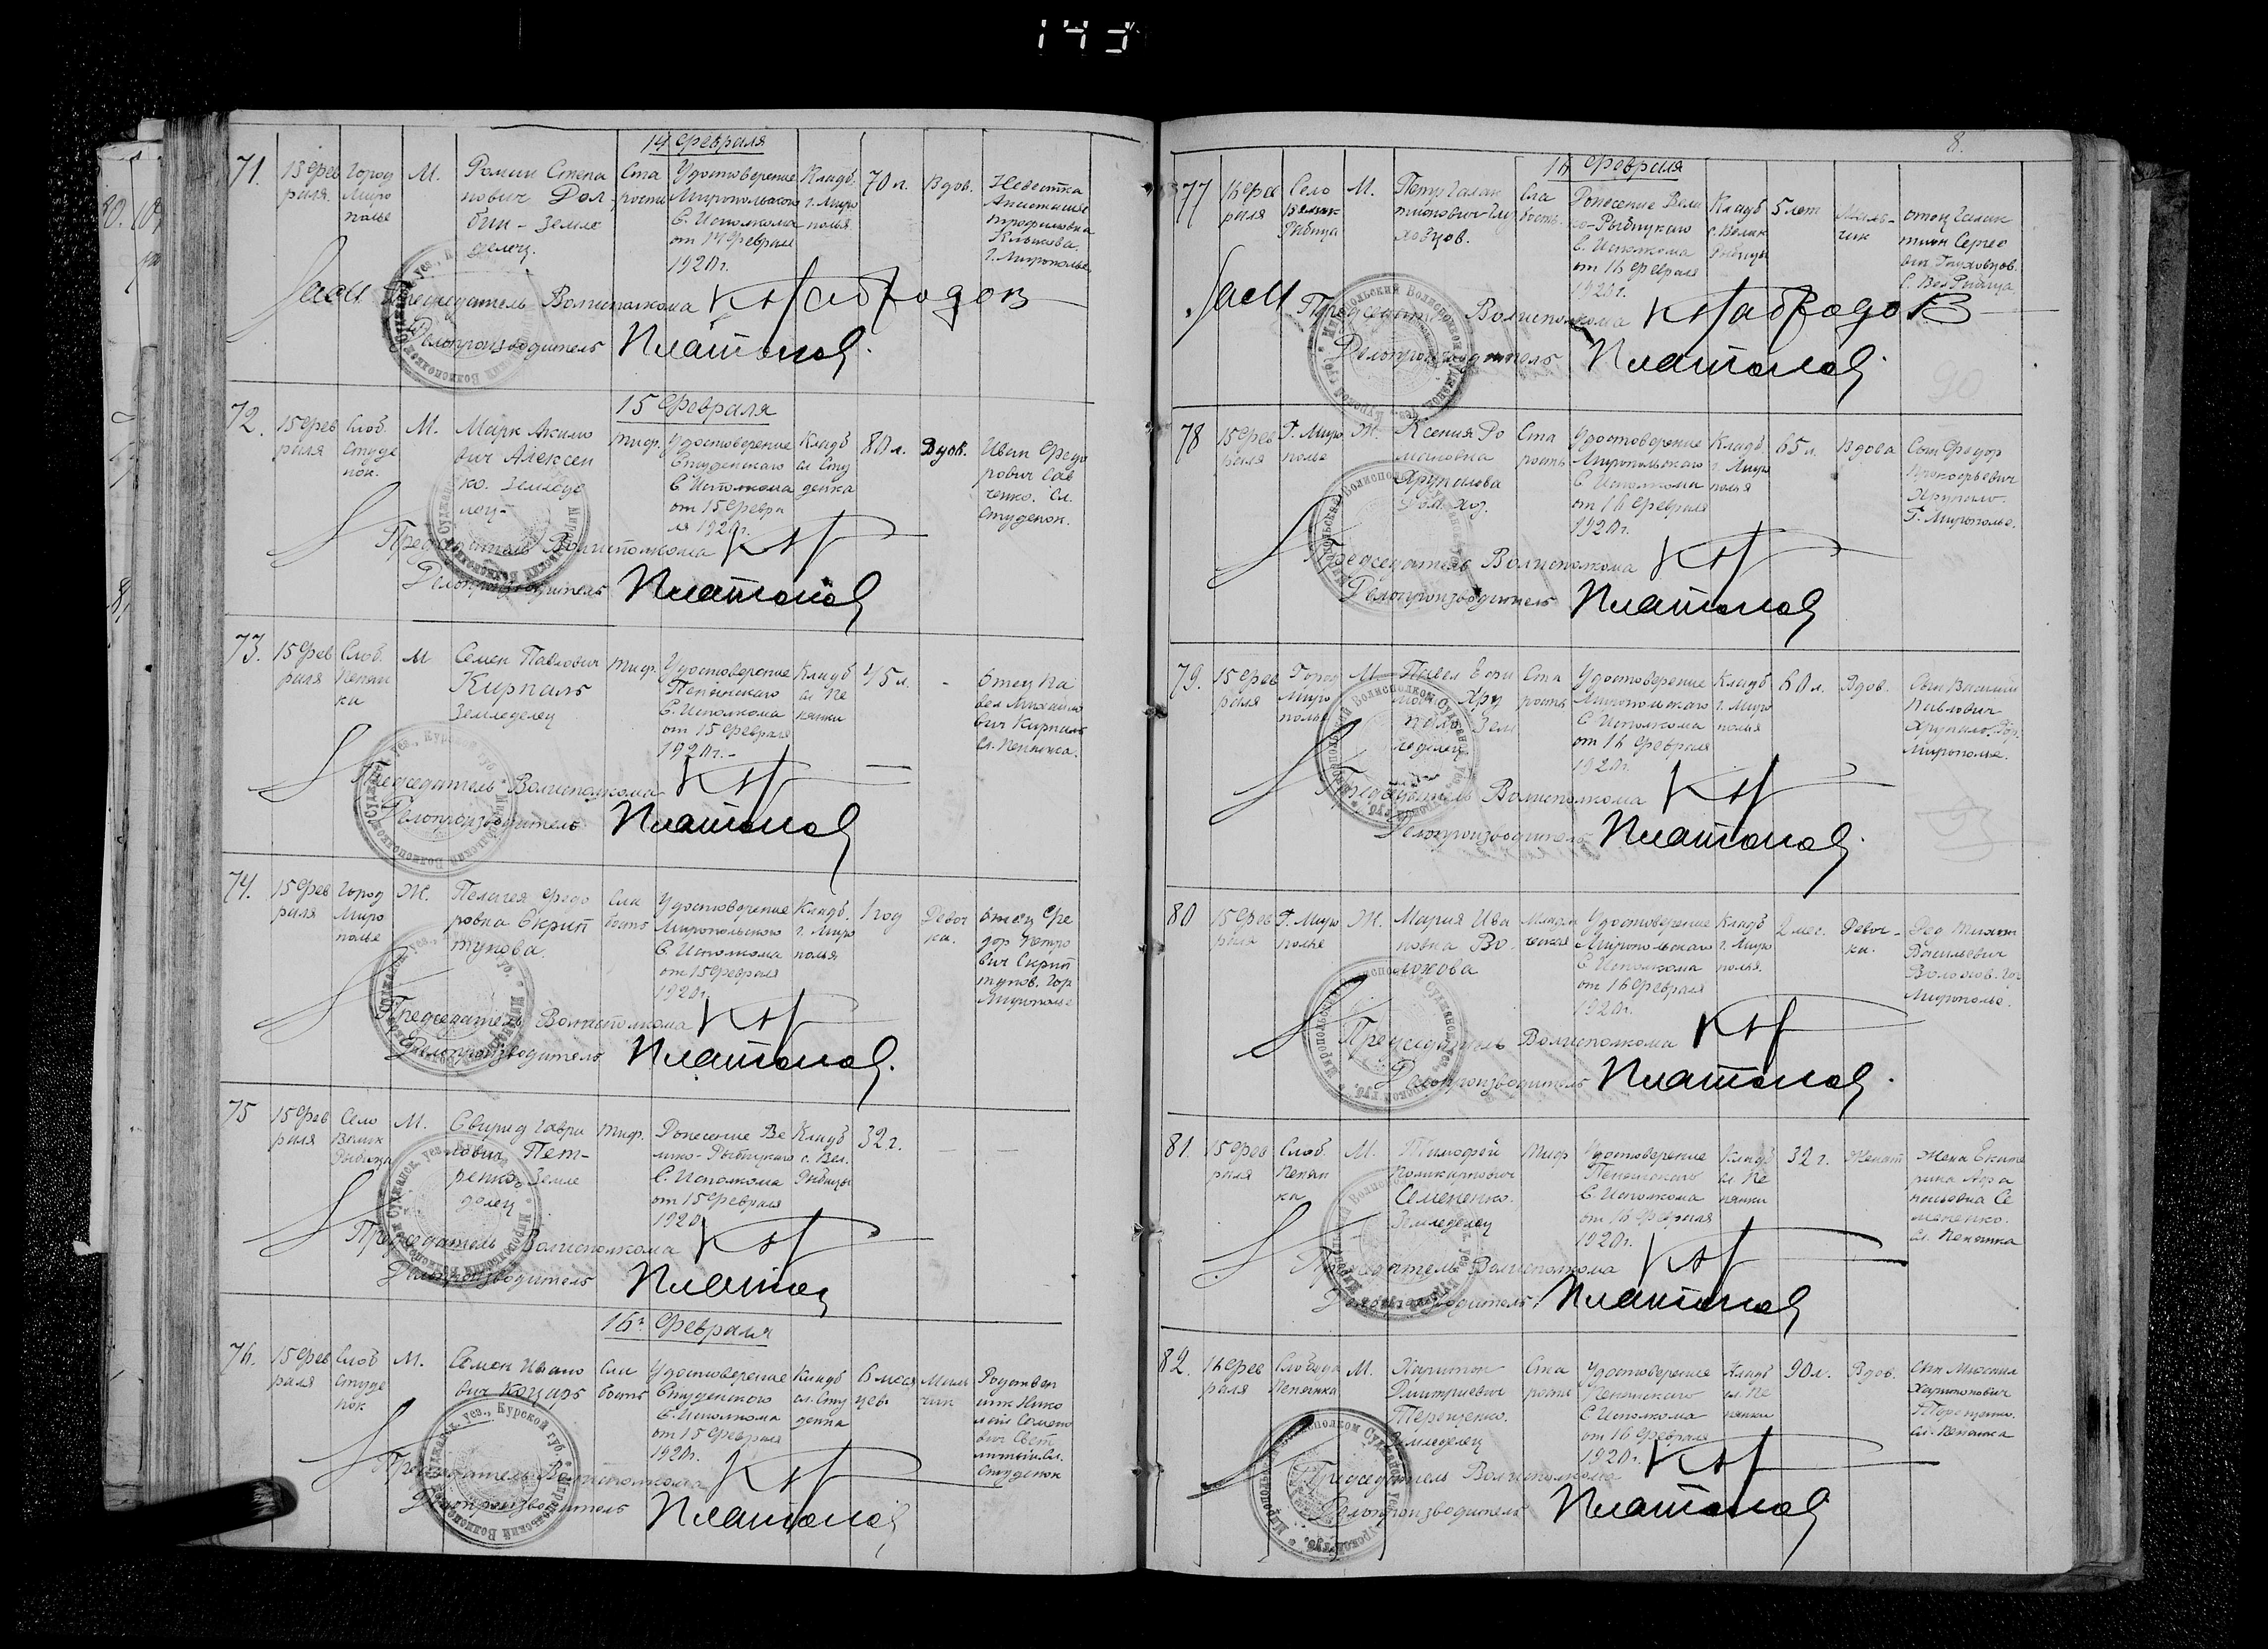 14 Февраля
71.
13 Фев
раля
Город
Миро
полье
М.
Роман Степа
нович Дол
бин -Земле
делец.
Ста
рости
Удостоверение
Миропольского
С. Исполкома
от 14 Февраля
1920 г.
Кладб.
г. Миро
полья
70 л.
Вдов.
Невестка
Анастасия
Трофимовна
г. Мирополье
Председатель Волисполкома
Делопроизводитель Платонов
15 Февраля
72.
15 Фев
раля
Слоб.
Студе
нок.
М.
Марк Акимо
вич Алексеен
ко. Земледе
лец -
Тиф.
Удостоверение
Студенского
С. Исполкома
от 15 Февра
ля 1920 г.
Кладб
сл Сту
денка
80 л.
Вдов.
Иван Федо
рович Сав
ченко. Сл.
Студенок.
Председатель Волисполкома
Делопроизводитель Платонов
73.
15 Фев
раля
Слоб.
Пенян
ка
М
Семен Павлович
Кирпаль
Земледелец
Тиф.
Удостоверение
Пенянского
С. Исполкома
от 15 Февраля
1920 г. -
Кладб
сл Пе
нянки
45 л.
-
Отец Па
вел Михайло
вич Кирпаль
Сл. Пенянка.
Председатель Волисполкома
Делопроизводитель Платонов
74.
15 Фев
раля
Город
Миро
полье
Ж.
Пелагея Федо
ровна Скрип
тунова.
Сла
бость
Удостоверение
Миропольского
С. Исполкома
от 15 Февраля
1920 г.
Кладб.
г. Миро
полья
1 год
Девоч
ка.
Отец Фе
дор Петро
вич Скрип
тунов. Гор
Мирополье
Председатель Волисполкома
Делопроизводитель Платонов.
75
15 Фев
раля
Село
Велик
Рыбица
М.
Свирид Гаври
лович Пет-
ренко Земле
делец
Тиф.
Донесение Ве
лико-Рыбицкого
С. Исполкома
от 15 Февраля
1920
Кладб
с. Вел.
Рыбицы
32 г.
-
-
Председатель Волисполкома
Делопроизводитель Платонов
16 Февраля
76.
15 Фев
раля
Слоб
Студе
нок
М.
Семен Ивано
вич Коцарь
Сла
бость
Удостоверение
Студенского
С. Исполкома
от 15 Февраля
1920 г.
Кладб
сл. Сту
денка
6 меся
цев.
Маль
чик
Родствен
ник Нико
лай Семено
вич
Студенок
Председатель Волисполкома
Делопроизводитель Платонов
8.
16 Февраля
77
16 Фев
раля
Село
Велик
Рыбица
М.
Петр Галак
тионович Глу
ховцов.
Сла
бость.
Донесение Вели
ко-Рыбицкого
С. Исполкома
от 16 Февраля
1920 г.
Кладб
с. Велик
Рыбицы
5 лет
Маль-
чик
отец Галак
тион Сергее
вич Глуховцов.
С. Вел Рыбица
Председатель Волисполкома
Делопроизводитель Платонов.
78
15 Фев
раля
Г. Миро
полье
Ж.
Ксения Ро
мановна
Хрупалова
Дом. Хоз.
Ста
рость
Удостоверение
Миропольского
С Исполкома
от 16 Февраля
1920 г.
Кладб
г. Миро
полья
65 л.
Вдова
Сын Федор
Прокофьевич
Хрупало.
Г. Мирополье.
Председатель Волисполкома
Делопроизводитель Платонов
79.
15 Фев
раля
Город
Миро
полье
М.
Павел
Хру
Зем
леделец
Ста
рость
Удостоверение
Миропольского
С Исполкома
от 16 Февраля
1920 г.
Кладб
г. Миро
полья
80 л.
Вдов.
Сын Василий
Павлович
Хрупало. Гор.
Мирополье.
Председатель Волисполкома
Делопроизводитель Платонов.
80
15 Фев
раля
Г. Миро
полье
Ж.
Мария Ива
новна Во-
лохова
Младен
ческая
Удостоверение
Миропольского
С Исполкома
от 16 Февраля
1920 г.
Кладб
г. Миро
полья.
2 мес.
Девоч-
ка.
Дед
Васильевич
Волохов. Гор
Мирополье.
Председатель Волисполкома
Делопроизводитель Платонов.
81.
15 Фев
раля
Слоб.
Пенян
ка
М.
Тимофей
Поликарпович
Семененко.
Земледелец
Тиф
Удостоверение
Пенянского
С Исполкома
от 16 Февраля
1920 г.
Кладб
сл Пе
нянки
32 г.
Женат
Жена Екате
рина Афа
насьевна Се
мененко.
сл. Пенянка
Председатель Волисполкома
Делопроизводитель Платонов
82.
16 Фев
раля
Слобода
Пенянка
М.
Харитон
Дмитриевич
Терещенко.
Земледелец
Ста
рость
Удостоверение
Пенянского
С Исполкома
от 16 Февраля
1920 г.
Кладб
сл. Пе
нянки
90 л.
Вдов.
Сын Михаил
Харитонович
Терещенко.
сл. Пенянка
Председатель Волисполкома
Делопроизводитель Платонов